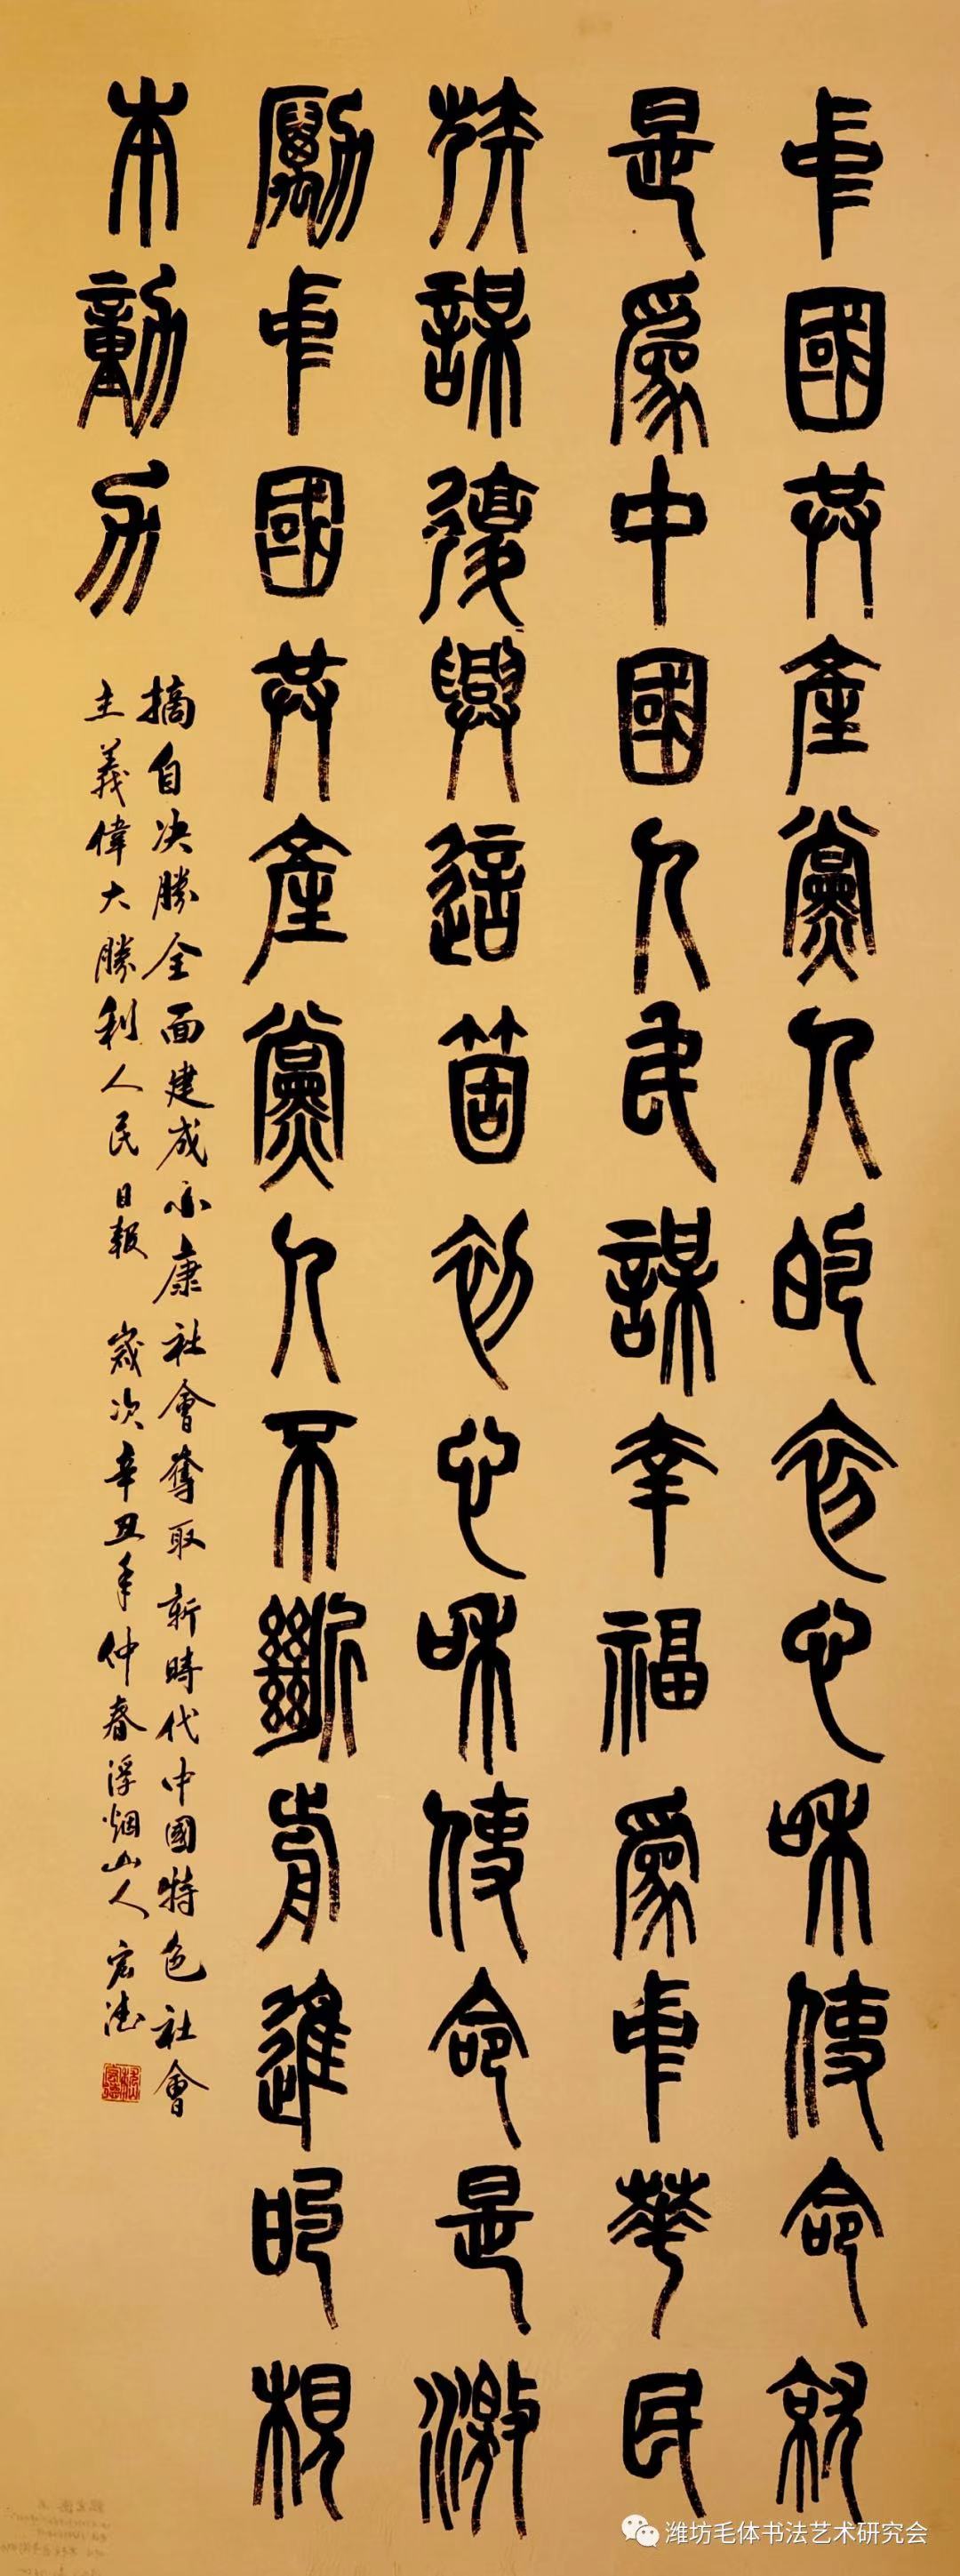 中國共產黨人的初心和使命就
是為中國人民謀幸福為中華民
族謀復興這箇初心和使命是激
勵中國共產黨人不斷前進的根
本動力
摘自决勝全面建成小康社會奪取新時代中國特色社會
主義偉大勝利人民日報 歲次辛丑年仲春浮烟山人宏法
潍坊毛体书法艺术研究会